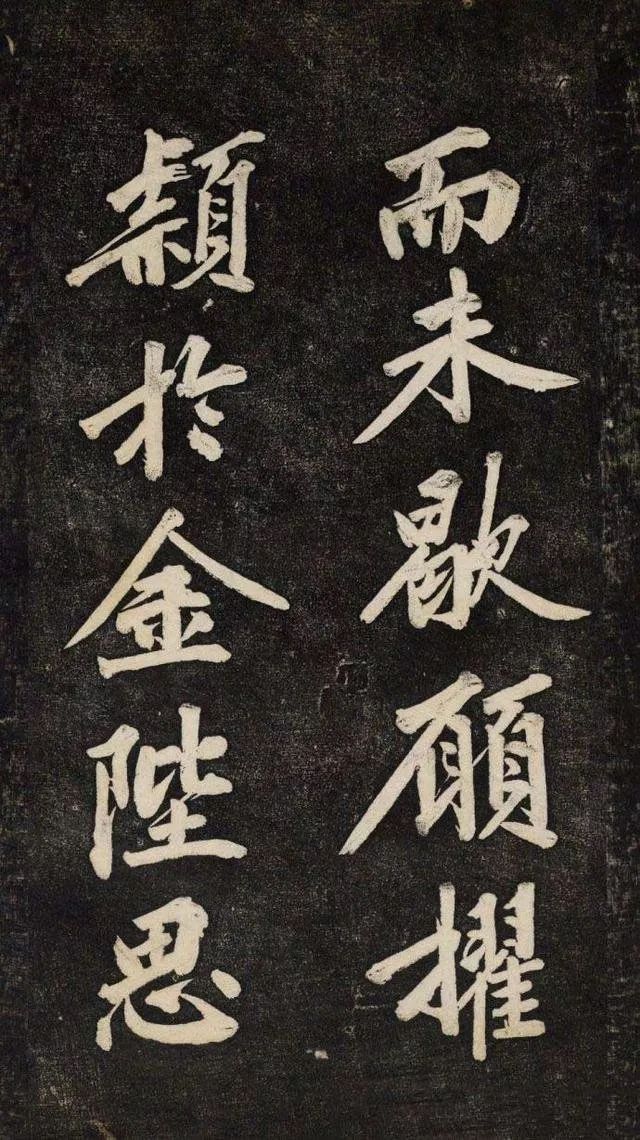 而未歇願擢
頴於金陛思